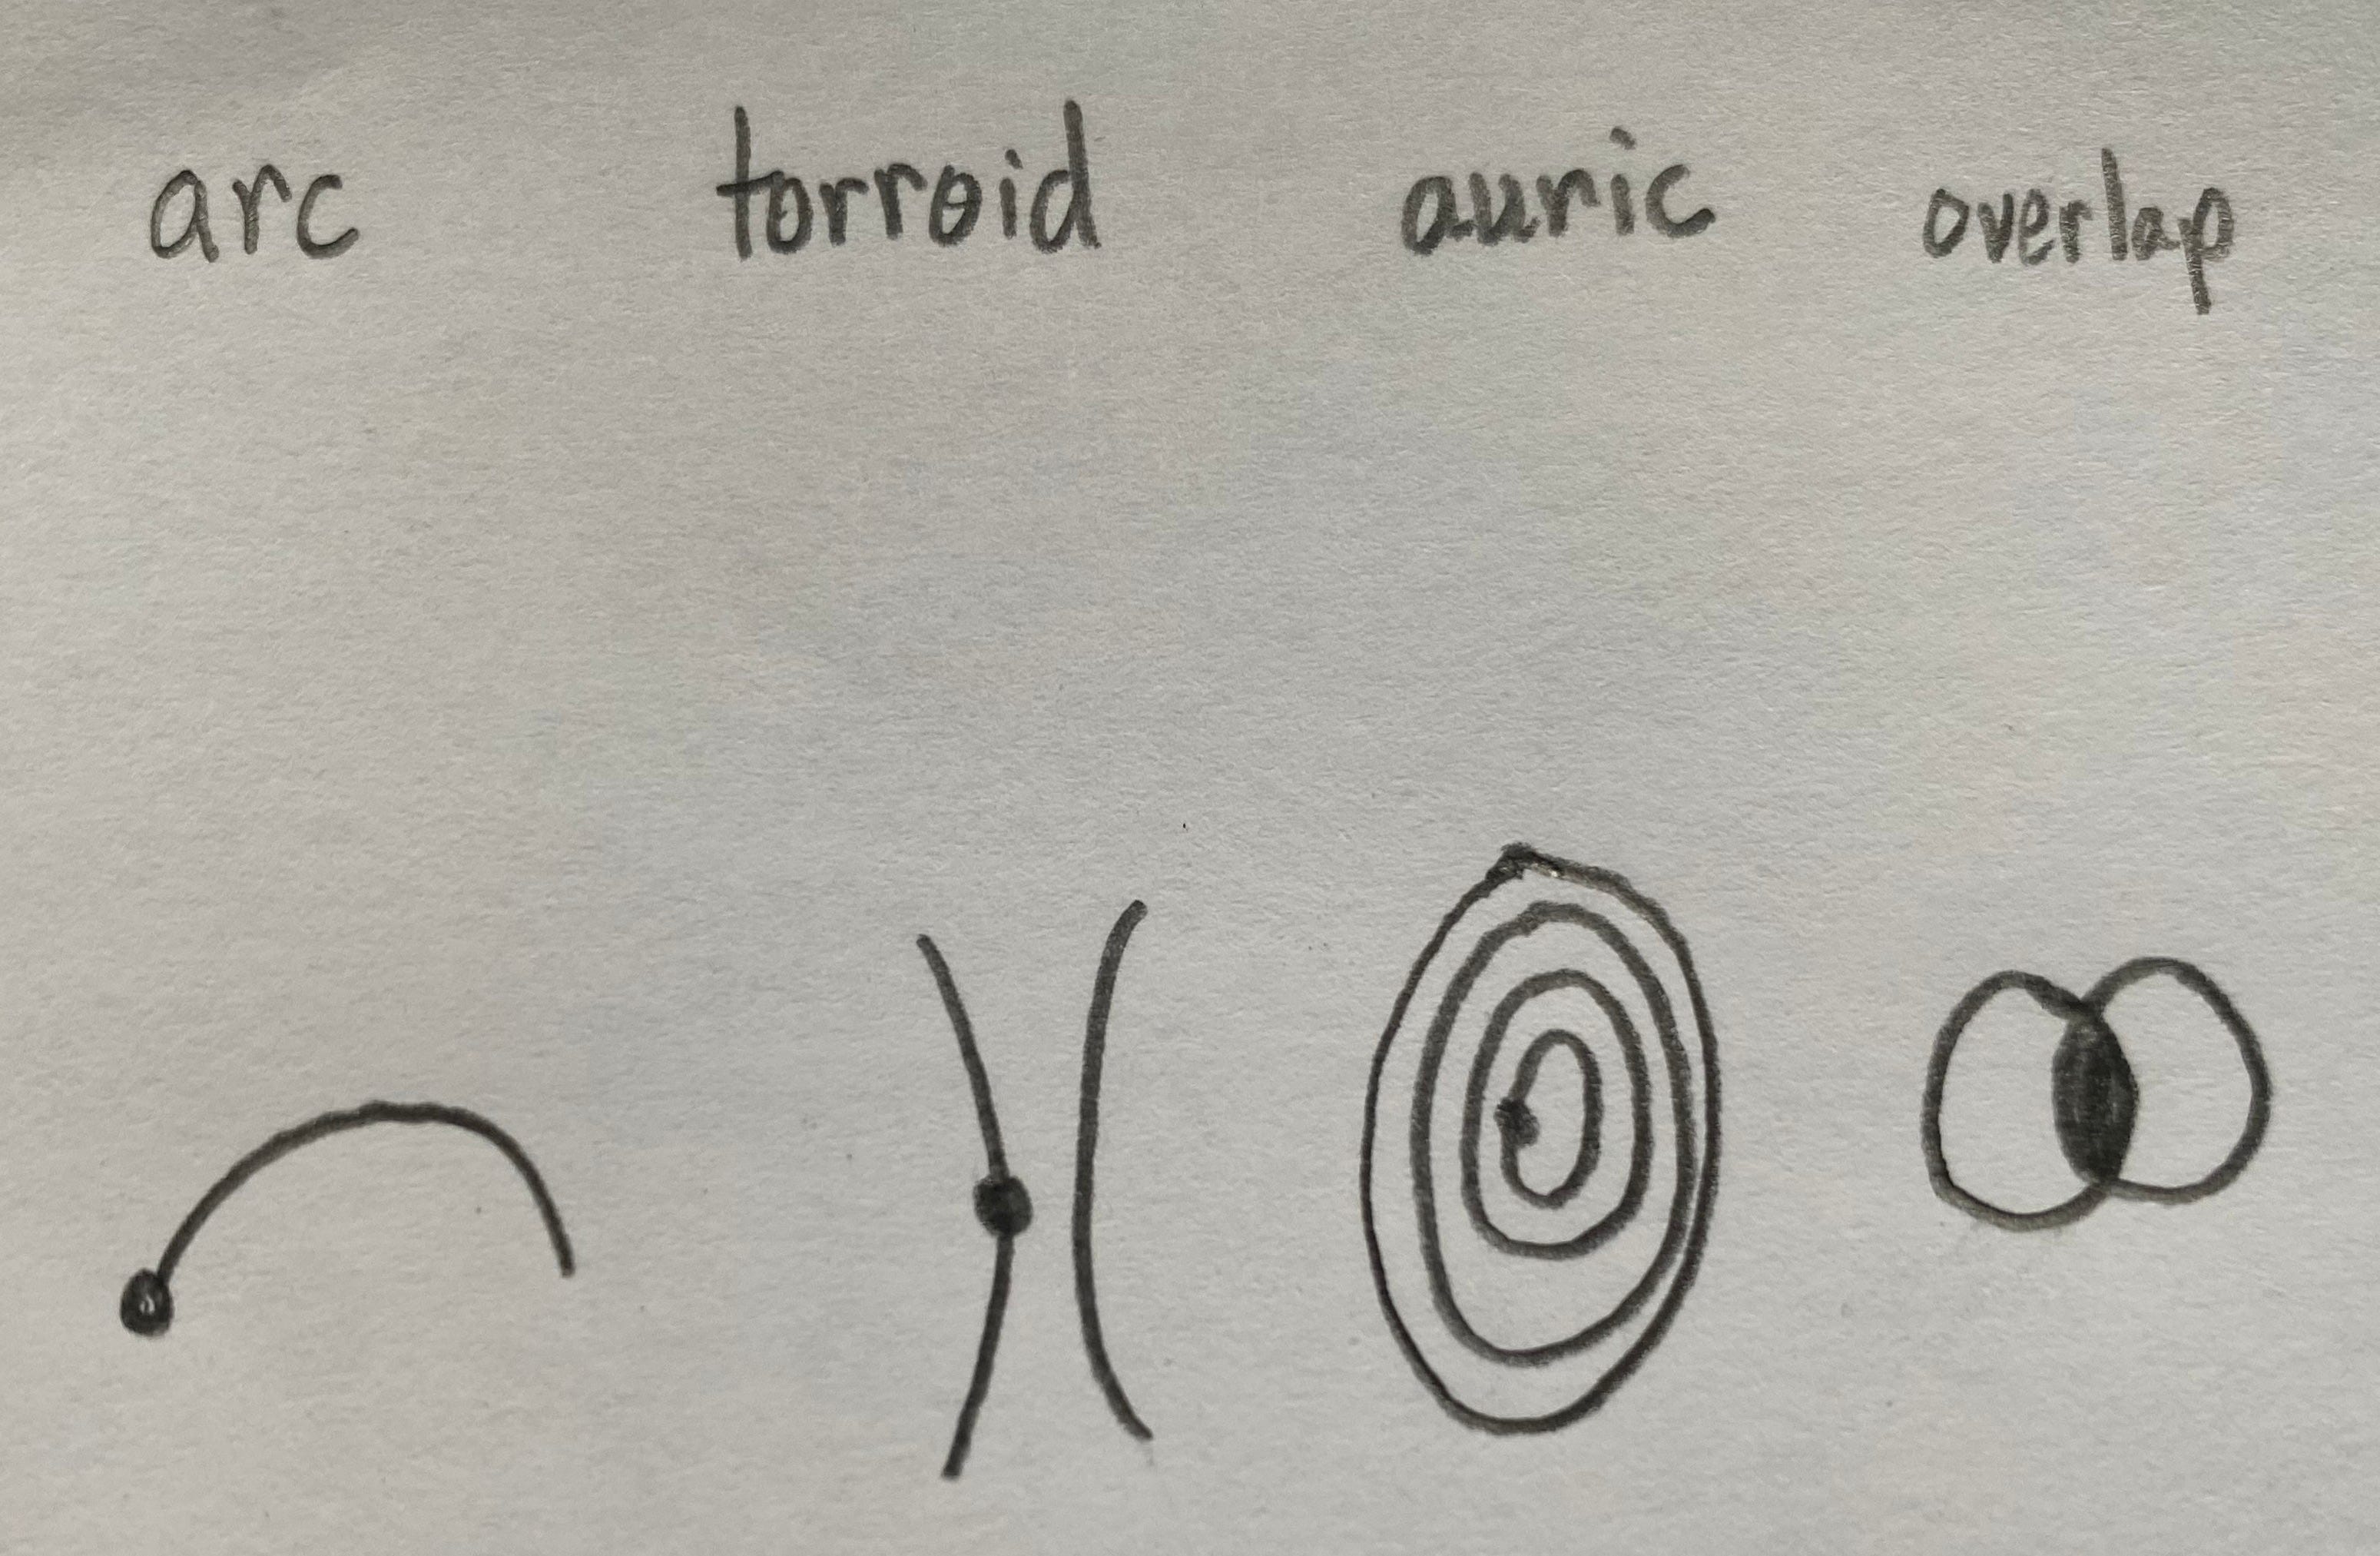 arc torroid auric overlap